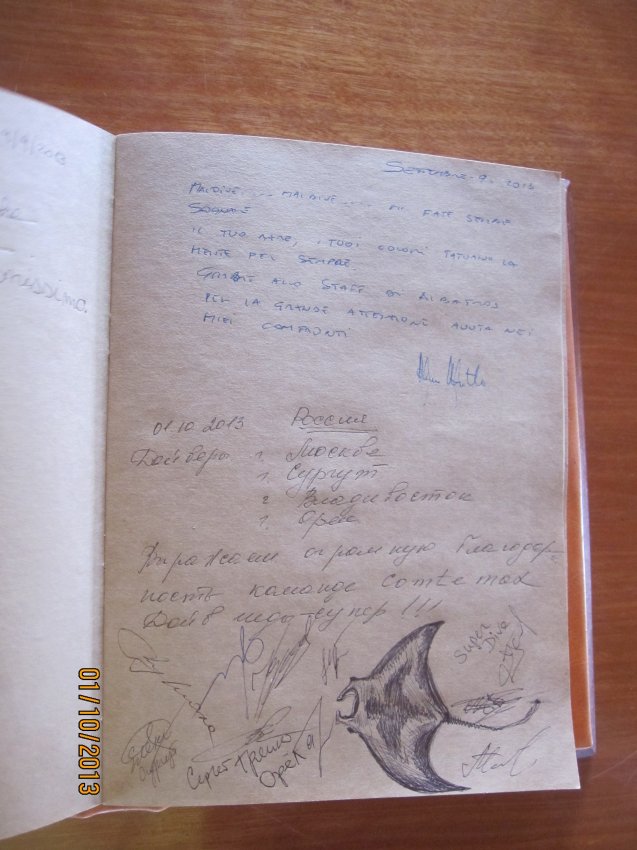 9/9/2013
nissima.
SETTEMBRE - 9. 2013
MALDIVE .... MALDIVE .... MI FATE SEMPRE
SOGNARE
IL TUO MARE, I TUOI COLORI TATUANO LA
MENTE PER SEMPRE.
GRAZIE ALLO STAFF DI ALBATROS
PER LA GRANDE ATTENZIONE AVUTA NEI
MIEI CONFRONTI
01.10.2013 Россия
Дайверы г. Москве
г. Сургут
г. Владивосток
г. Орел
Выражаем огромную благодар-
ность команде comte max
Дайв гиды-супер !!!
Super
Diva
Сургут
Сергей
Орел
01/10/2013